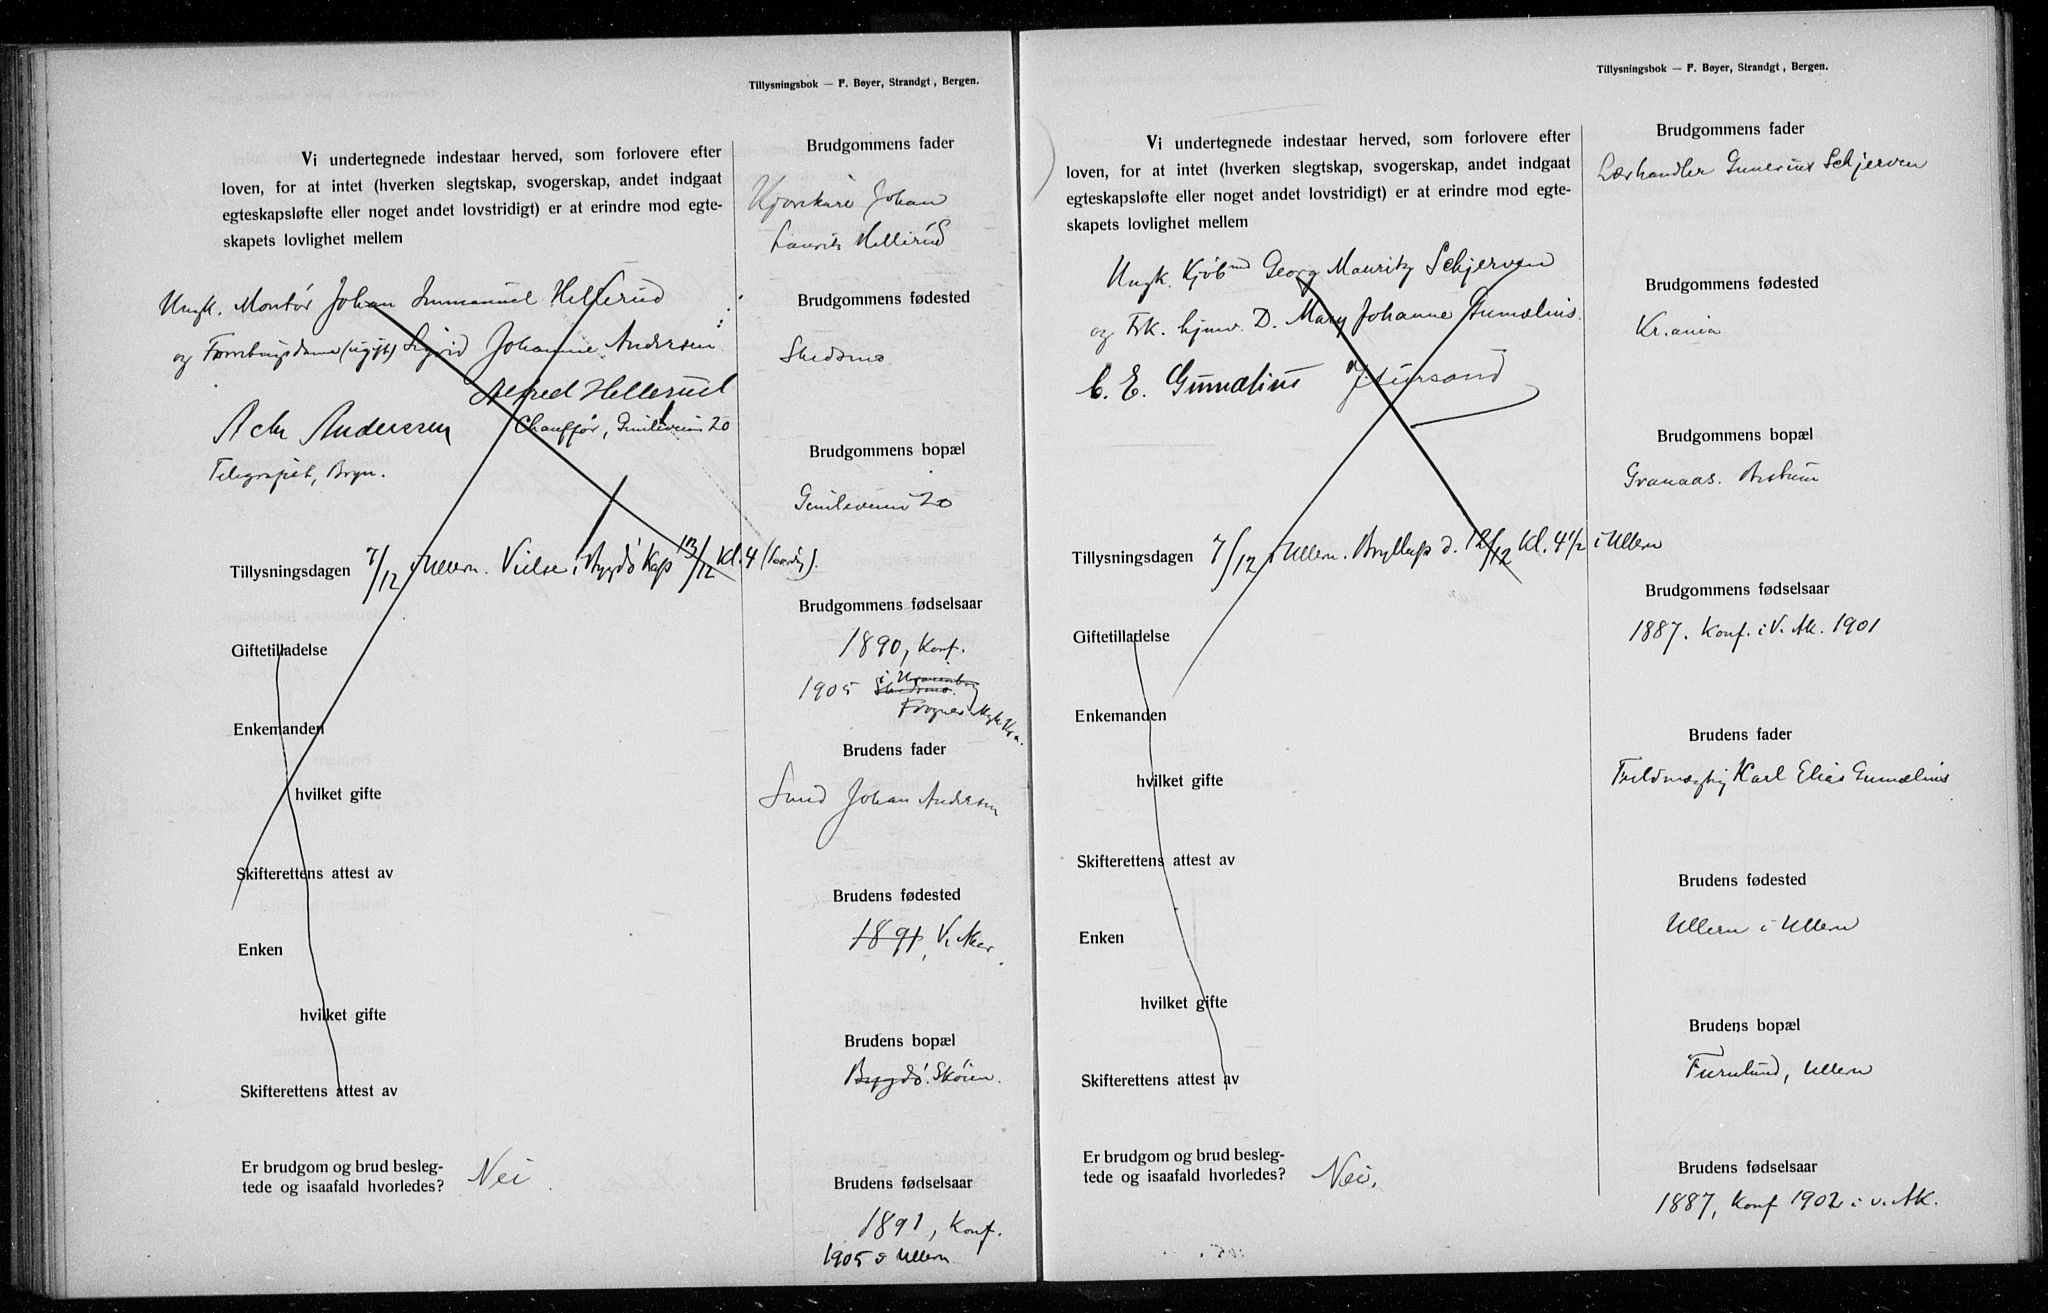 Tillysningsbok — F. Bøyer, Strandgt, Bergen.
Vi undertegnede indestaar herved, som forlovere efter
loven, for at intet (hverken slegtskap, svogerskap, andet indgaat
egteskapsløfte eller noget andet lovstridigt) er at erindre mod egte-
skapets lovlighet mellem
Ungk. Montør Johan Immanuel Hellerud
og Forretningsdame (ugift) Sigrid Johanne Andersen
Alfred Hellerud
Chauffør, Gimleveien 20
Anderssen
Telegrafist, Bryn.
Tillysningsdagen 7/12 i Ullern. Vielse i Bygdö Kap 13/12 Kl. 4
Giftetilladelse
Enkemanden
hvilket gifte
Skifterettens attest av
Enken
hvilket gifte
Skifterettens attest av
Er brudgom og brud besleg-
tede og isaafald hvorledes? Nei
Brudgommens fader
Johan
Lauritz Hellerud
Brudgommens fødested
Skedsmo
Brudgommens bopæl
Gimleveien 20
Brudgommens fødselsaar
1890, Konf.
1905 i Uranienborg
Skedsmo.
Frogner
Brudens fader
Smed Johan Andersen
Brudens fødested
1891, V. Aker
Brudens bopæl
Bygdö. Sköien.
Brudens fødselsaar
1891, Konf.
1905 i Ullern
Tillysningsbok — F. Bøyer, Strandgt, Bergen.
Vi undertegnede indestaar herved, som forlovere efter
loven, for at intet (hverken slegtskap, svogerskap, andet indgaat
egteskapsløfte eller noget andet lovstridigt) er at erindre mod egte-
skapets lovlighet mellem
Ungk. Kjöbmd Georg Mauritz Schjerven
og Frk. hjmv. D. Mary Johanne Gumælius.
C. E. Gumælius
Tillysningsdagen 7/12 i Ullern. Bryllup d. 12/12 Kl. 4 1/2 i Ullern
Giftetilladelse
Enkemanden
hvilket gifte
Skifterettens attest av
Enken
hvilket gifte
Skifterettens attest av
Er brudgom og brud besleg-
tede og isaafald hvorledes? Nei.
Brudgommens fader
Lærhandler Gunerius Schjerven
Brudgommens fødested
Kr.ania
Brudgommens bopæl
Granaas. Bestum
Brudgommens fødselsaar
1887. Konf. i V. Ak. 1901
Brudens fader
Fuldmægtig Karl Elias Gumælius
Brudens fødested
Ullern i Ullern
Brudens bopæl
Furulund, Ullern
Brudens fødselsaar
1887, Konf 1902 i V. AK.